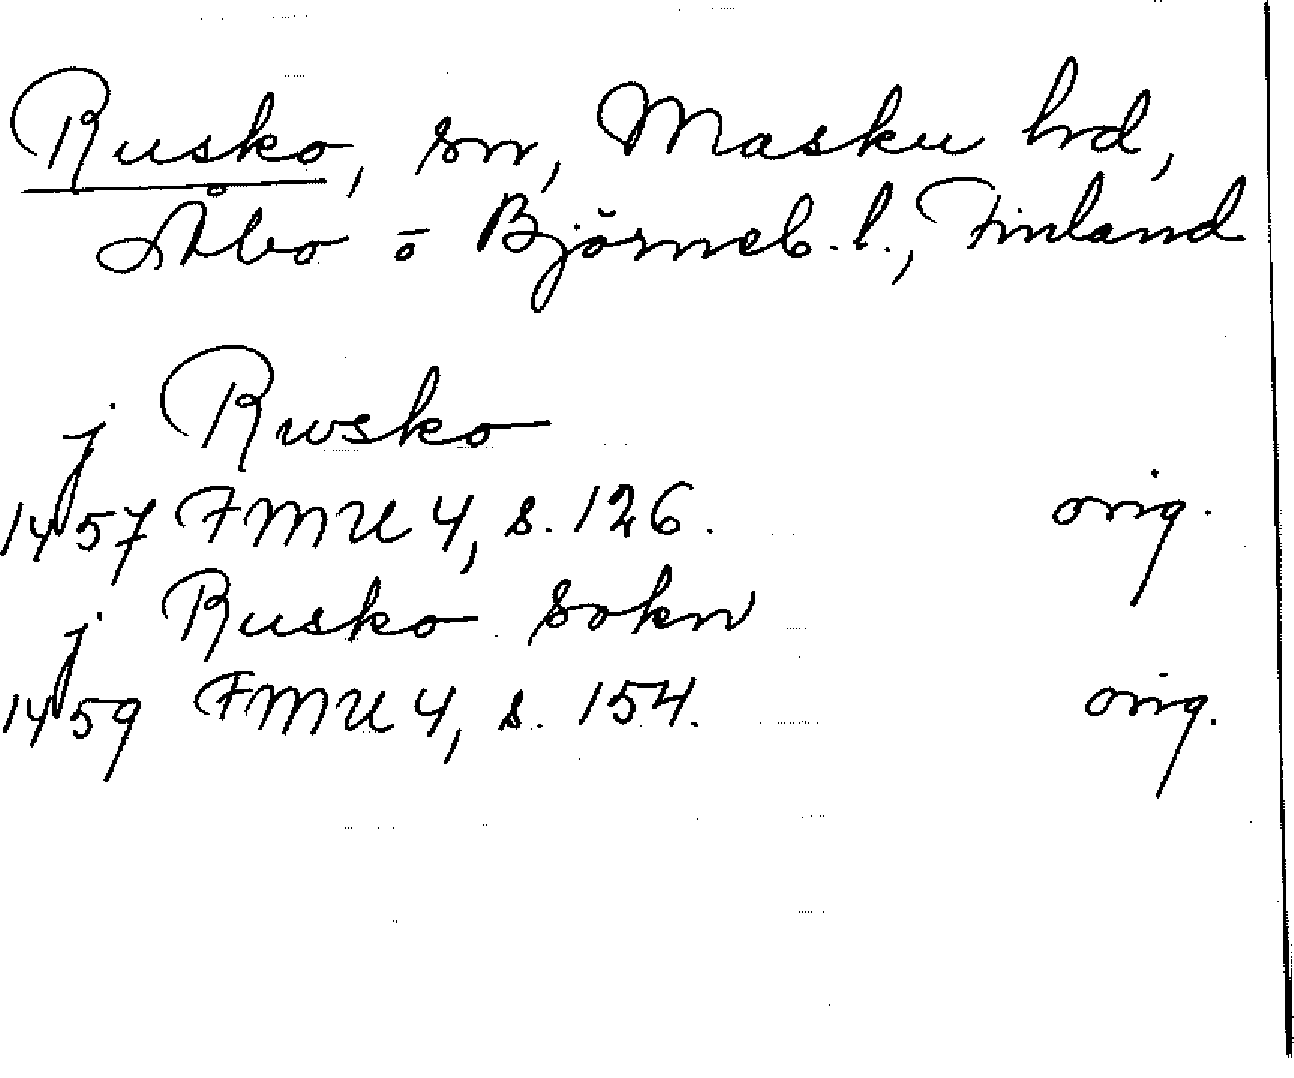 Rusko, sn, Masku hd,
Åbo o Björneb. l., Finland
j Rwsko
1457 FMU 4, s. 126. orig.
j Rusko sokn
1459 FMU 4, s. 154. orig.